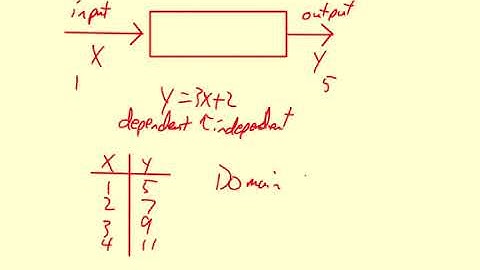 input output
X Y
1 5
Y = 3x+2
dependent ↑ independent
X Y
1 5
2 7
3 9
4 11
Domain